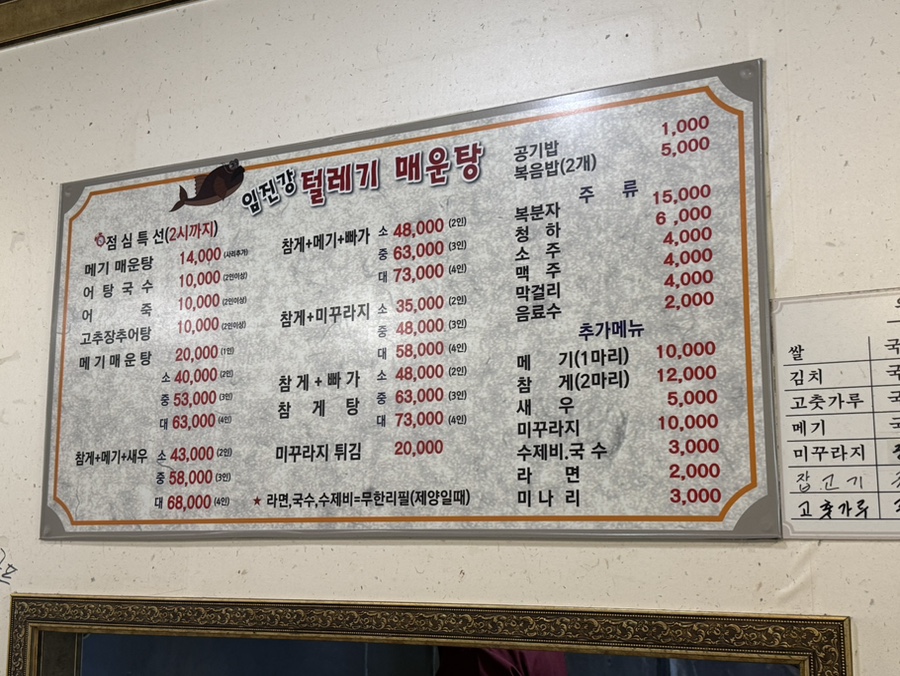 임진강 털레기 매운탕
점심특선(2시까지)
메기 매운탕 14,000 (사리추가)
어탕국수 10,000 (2인이상)
어죽 10,000 (2인이상)
고추장추어탕 10,000 (2인이상)
메기매운탕 20,000 (1인)
소 40,000 (2인)
중 53,000 (3인)
대 63,000 (4인)
참게+메기+새우 소 43,000 (2인)
중 58,000 (3인)
대 68,000 (4인)
참게+메기+빠가 소 48,000 (2인)
중 63,000 (3인)
대 73,000 (4인)
참게+미꾸라지 소 35,000 (2인)
중 48,000 (3인)
대 58,000 (4인)
참게+빠가 소 48,000 (2인)
참게탕 중 63,000 (3인)
대 73,000 (4인)
미꾸라지 튀김 20,000
★ 라면,국수,수제비=무한리필(제양일때)
공기밥 1,000
볶음밥(2개) 5,000
주류
복분자 15,000
청하 6,000
소주 4,000
맥주 4,000
막걸리 4,000
음료수 2,000
추가메뉴
메기(1마리) 10,000
참게(2마리) 12,000
새우 5,000
미꾸라지 10,000
수제비.국수 3,000
라면 2,000
미나리 3,000
쌀
김치
고춧가루
메기
미꾸라지
잡고기
고춧가루